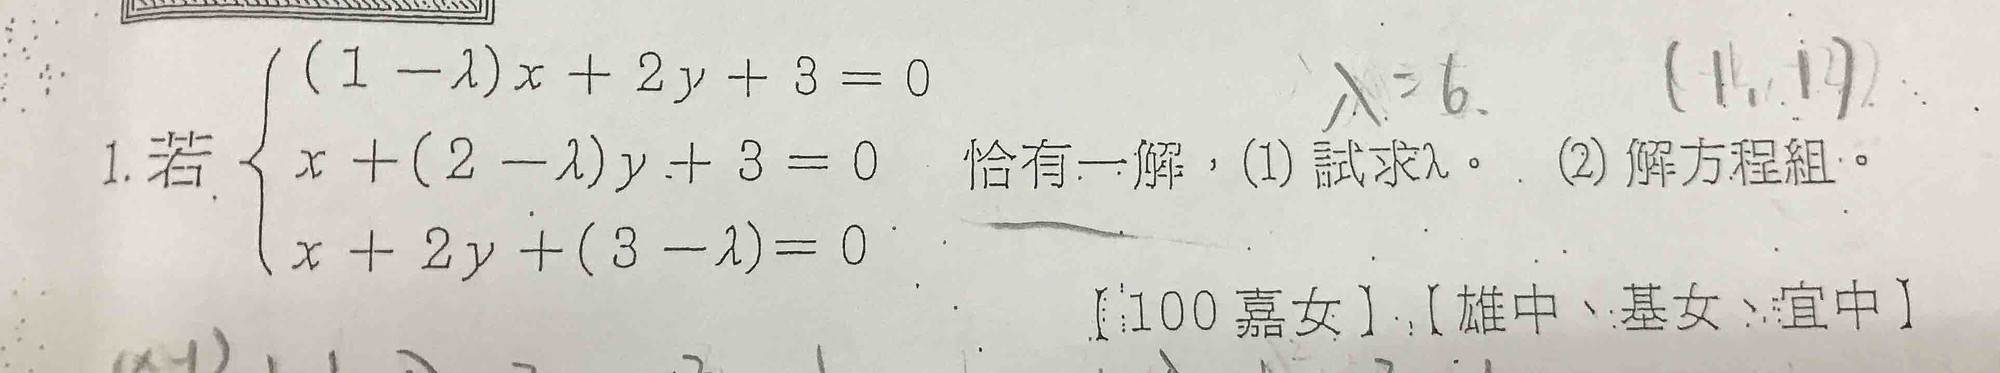 (1－λ)x＋2y＋3＝0
1.若 x＋(2－λ)y＋3＝0 恰有一解，(1)試求λ。 (2)解方程組。
x＋2y＋(3－λ)＝0
λ=6. (1, 1)
【100嘉女】【雄中、基女、宜中】